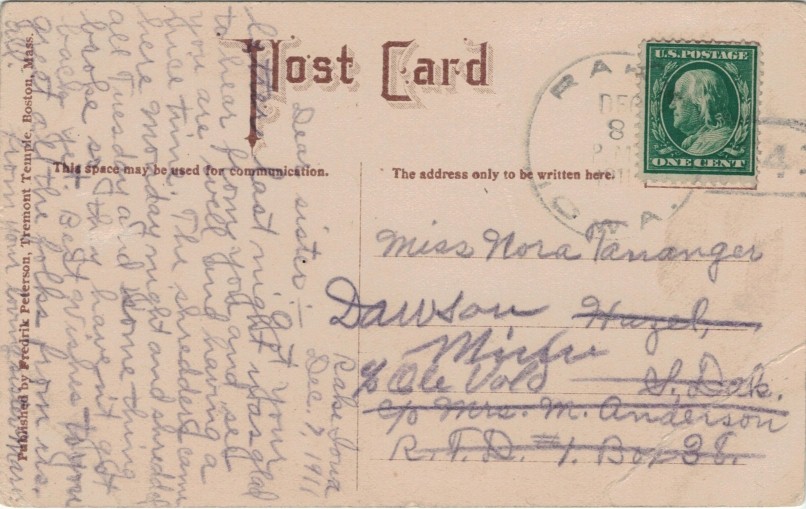 Post Card
This space may be used for communication.
The address only to be written here.
Published by Fredrik Peterson, Tremont Temple, Boston, Mass.
U.S. POSTAGE
ONE CENT
RAKE
DEC
8
IOWA.
4
Rake Iowa
Dec. 7, 1911
Dear sister:— Got your
letters last night was glad
to hear from you and see
you are well and having a
nice time. The shredders came
here Monday night and shredded
all Tuesday and some thing
broke so they haven't got
back yet. Best wishes to you
great all the folks from us.
from your loving sister
Miss Nora Tananger
Dawson Hazel,
Minn
c/o Ole Vold S. Dak.
c/o Mrs. M. Anderson
R.F.D. #1. Box 38.